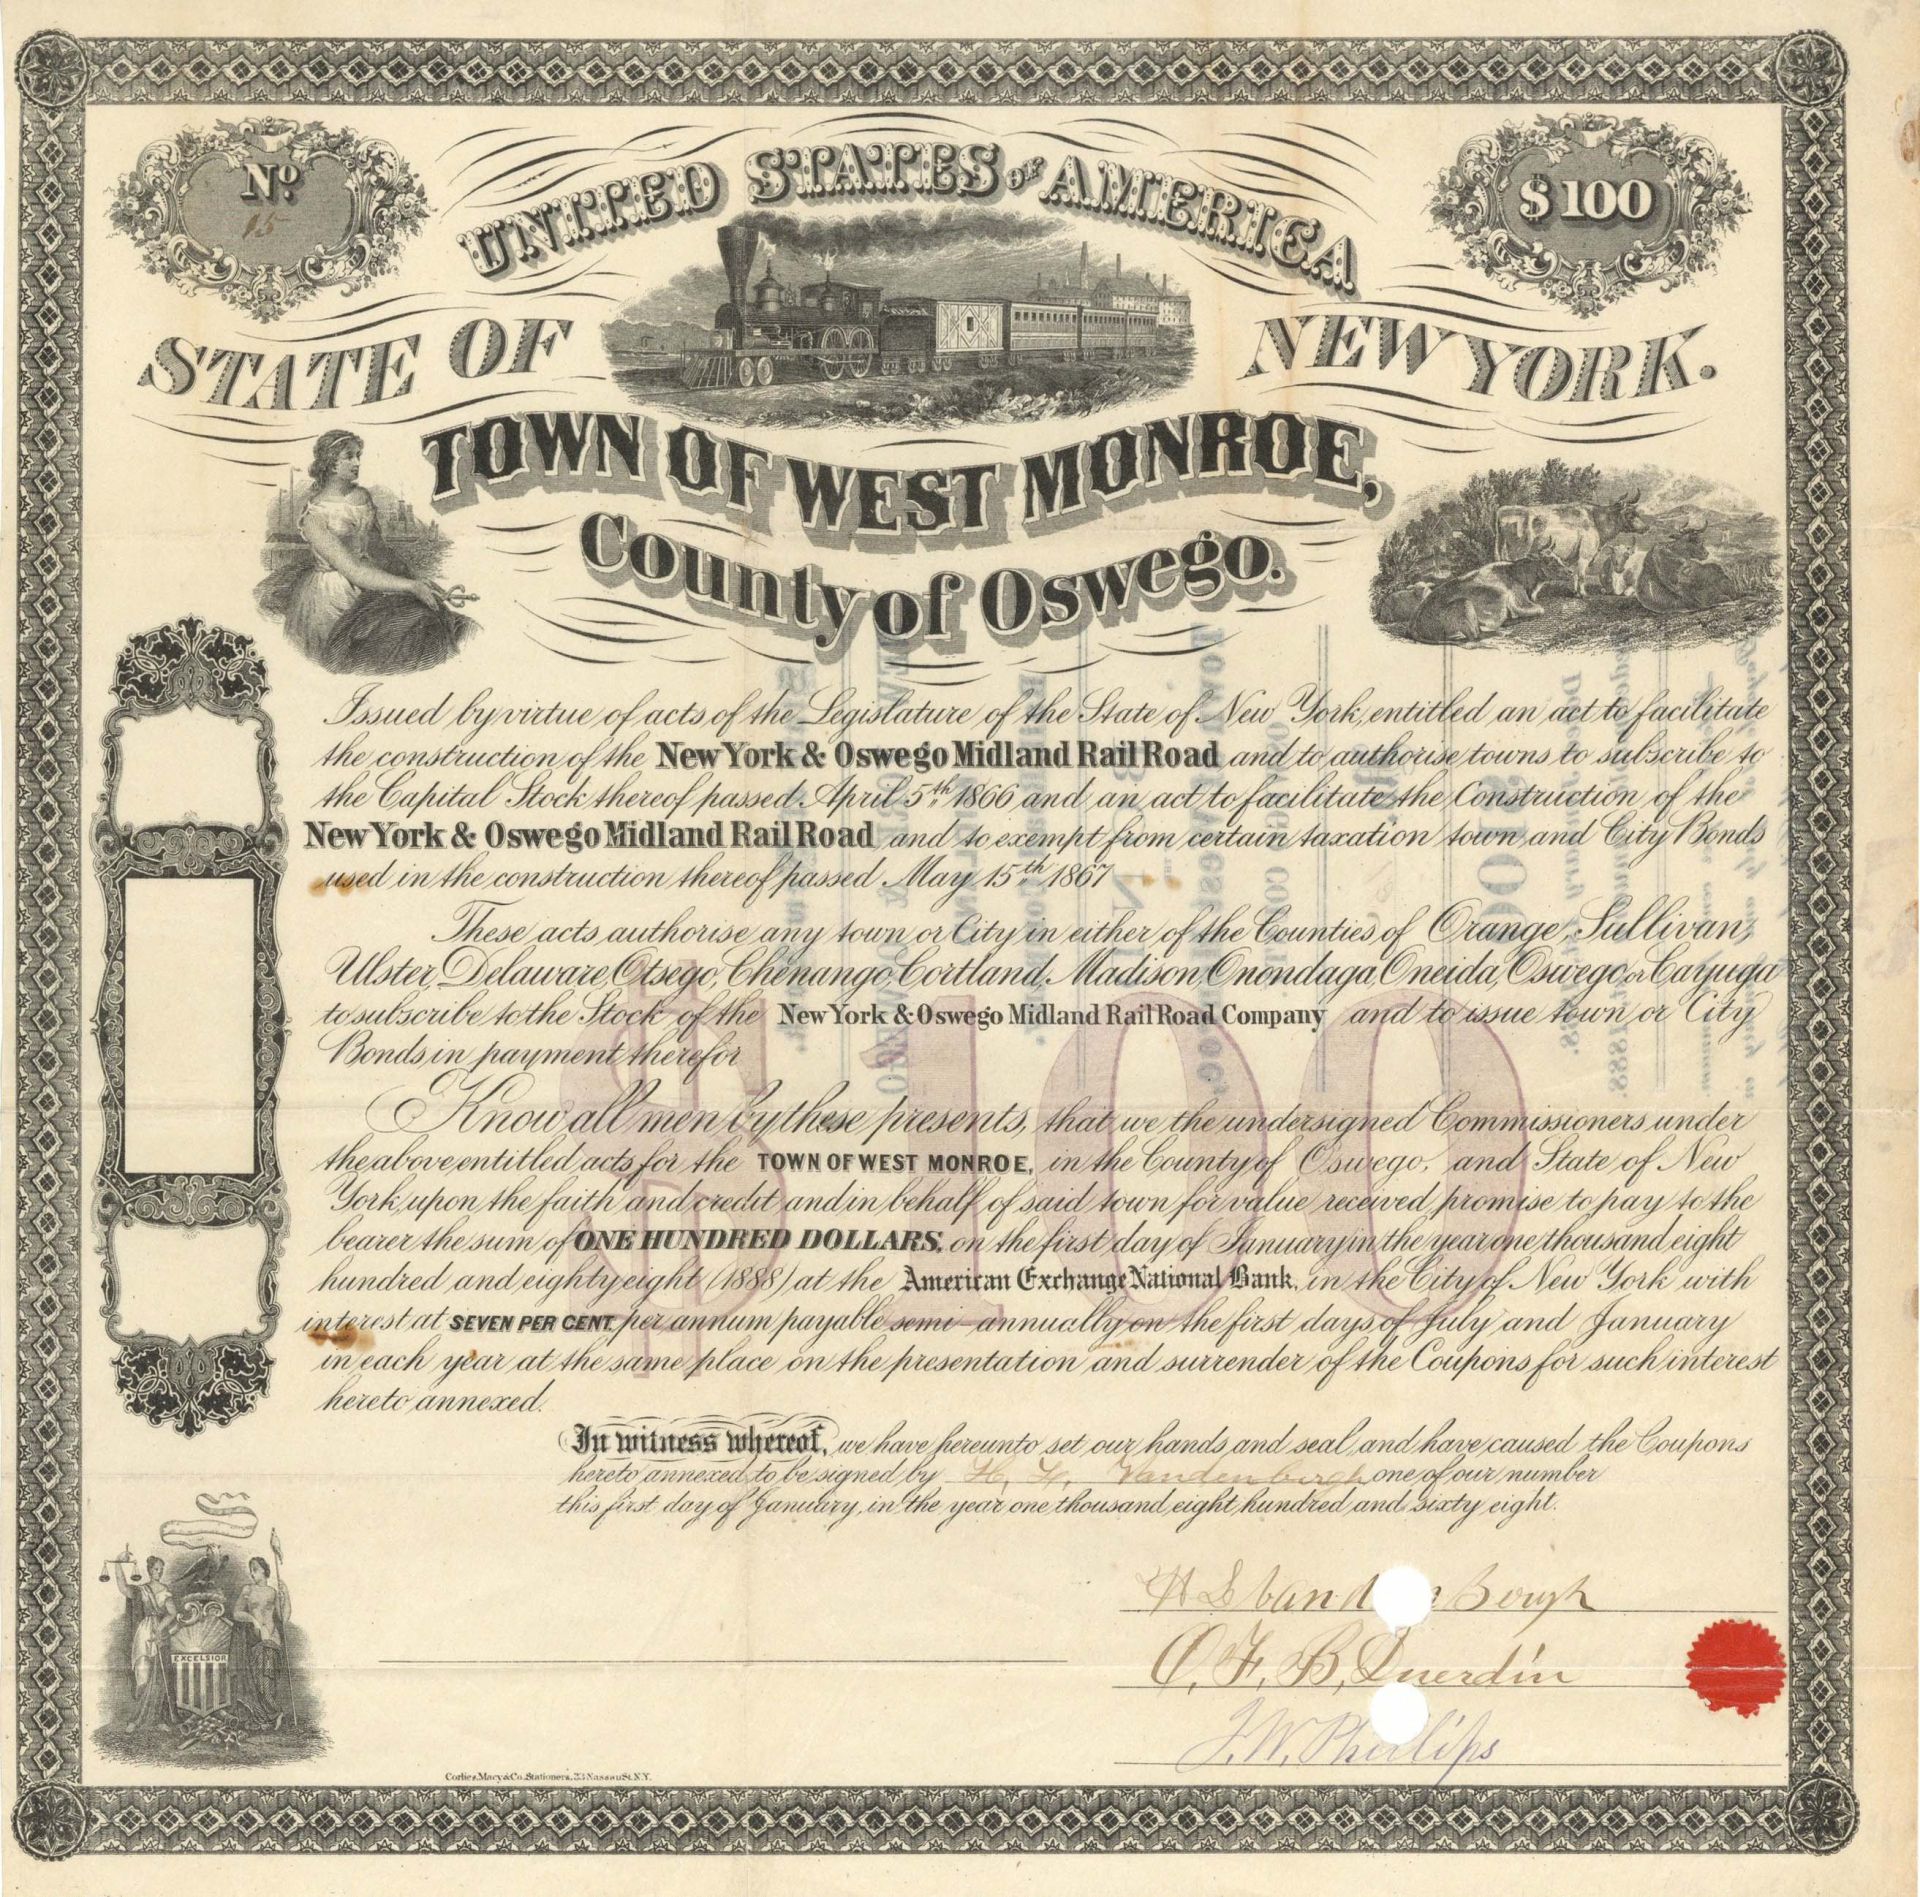 No.
15
$100
UNITED STATES OF AMERICA
STATE OF NEW YORK.
TOWN OF WEST MONROE,
County of Oswego.
Issued by virtue of acts of the Legislature of the State of New York, entitled an act to facilitate
the construction of the New York & Oswego Midland Rail Road and to authorise towns to subscribe to
the Capital Stock thereof passed April 5th 1866 and an act to facilitate the Construction of the
New York & Oswego Midland Rail Road and to exempt from certain taxation town and City Bonds
used in the construction thereof passed May 15th 1867
These acts authorise any town or City in either of the Counties of Orange, Sullivan,
Ulster, Delaware, Otsego, Chenango, Cortland, Madison, Onondaga, Oneida, Oswego, or Cayuga
to subscribe to the Stock of the New York & Oswego Midland Rail Road Company and to issue town or City
Bonds in payment therefor
Know all men by these presents, that we the undersigned Commissioners under
the above entitled acts for the TOWN OF WEST MONROE, in the County of Oswego, and State of New
York, upon the faith and credit and in behalf of said town for value received promise to pay to the
bearer the sum of ONE HUNDRED DOLLARS, on the first day of January in the year one thousand eight
hundred and eighty eight (1888) at the American Exchange National Bank, in the City of New York with
interest at SEVEN PER CENT. per annum payable semi-annually on the first days of July and January
in each year at the same place on the presentation and surrender of the Coupons for such interest
hereto annexed.
$100
In witness whereof, we have hereunto set our hands and seal, and have caused the Coupons
hereto annexed to be signed by H. L. Vandenburgh one of our number
this first day of January, in the year one thousand eight hundred and sixty eight.
O. F. B.
J. W. Phillips
EXCELSIOR
Corlies, Macy & Co. Stationers, 33 Nassau St. N.Y.